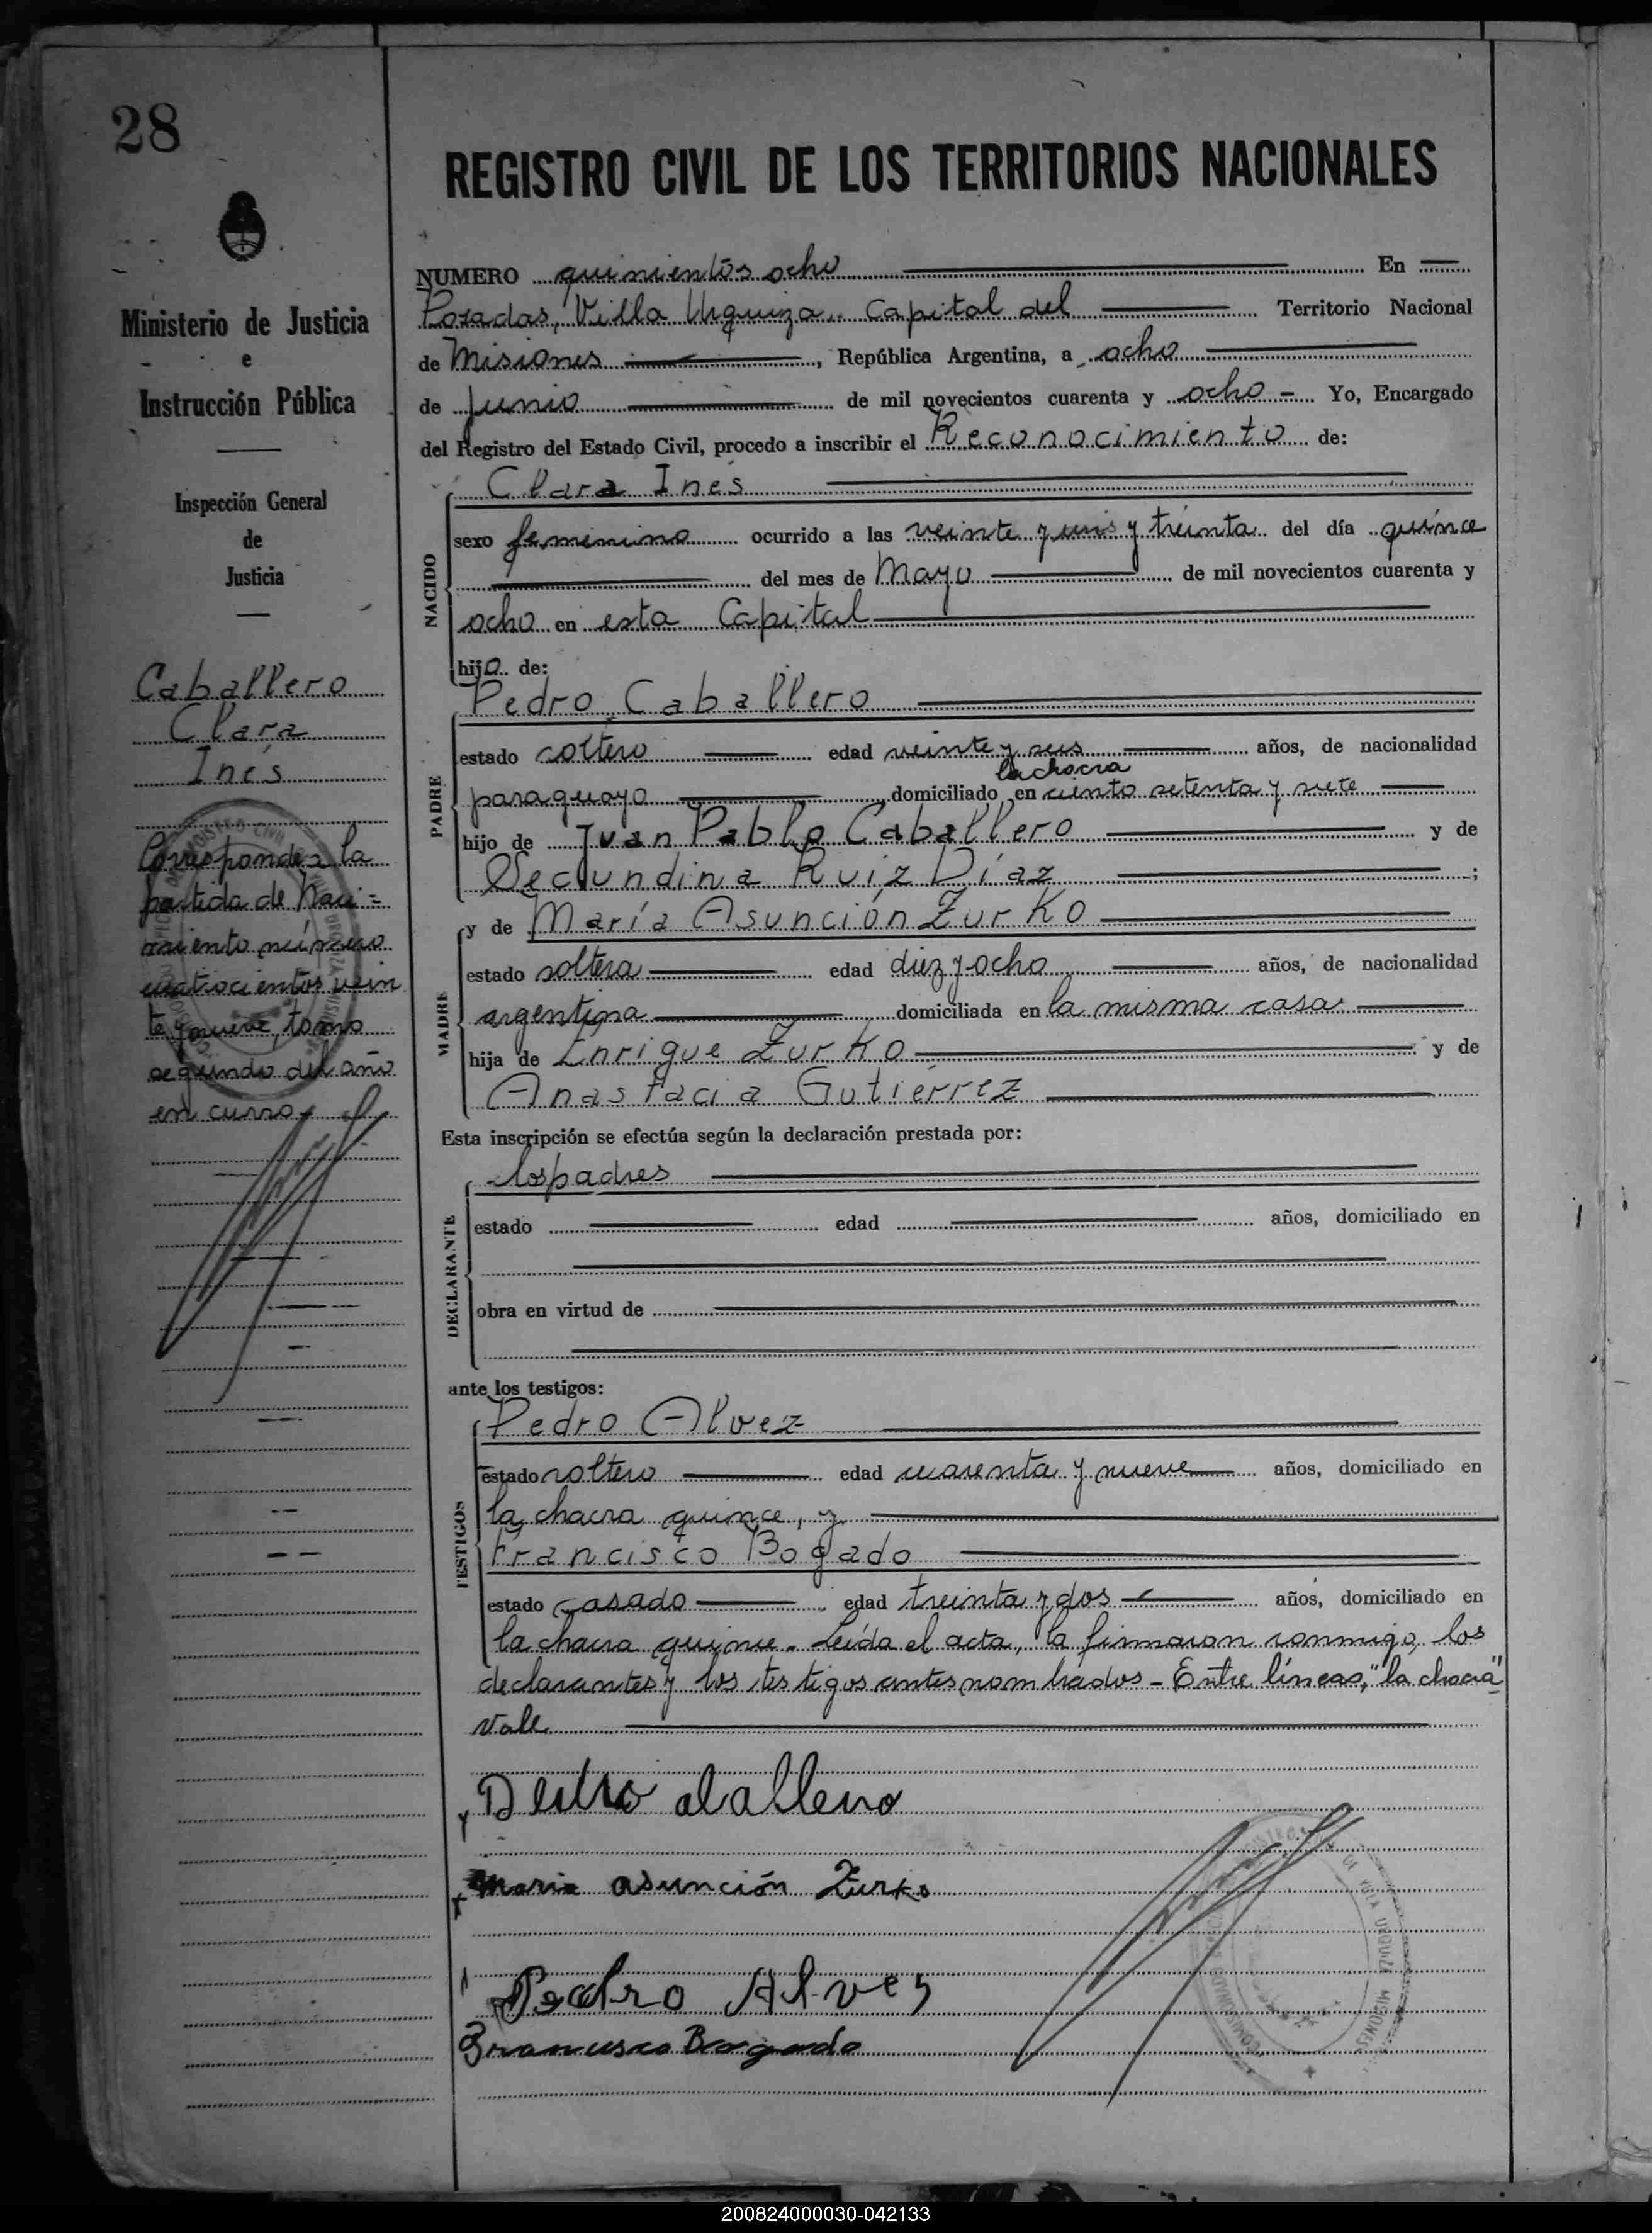 28
REGISTRO CIVIL DE LOS TERRITORIOS NACIONALES
Ministerio de Justicia
e
Instrucción Pública
Inspección General
de
Justicia
Caballero
Clara
Inés
Corresponde a la
partida de Naci=
miento número
cuatrocientos vein
te y nueve, tomo
segundo del año
en curso
NUMERO quinientos ocho En
Posadas, Villa Urquiza. Capital del Territorio Nacional
de Misiones, República Argentina, a ocho
de Junio de mil novecientos cuarenta y ocho - Yo, Encargado
del Registro del Estado Civil, procedo a inscribir el Reconocimiento de:
NACIDO
Clara Inés
sexo femenino ocurrido a las veinte y uno y treinta del día quince
del mes de Mayo de mil novecientos cuarenta y
ocho en esta Capital
hija de:
PADRE
Pedro Caballero
estado soltero edad veinte y seis años, de nacionalidad
la chacra
paraguayo domiciliado en ciento setenta y siete
hijo de Juan Pablo Caballero y de
Secundina Ruiz Díaz ;
MADRE
y de María Asunción Zurko
estado soltera edad diez y ocho años, de nacionalidad
argentina domiciliada en la misma casa
hija de Enrique Zurko y de
Anastacia Gutiérrez
Esta inscripción se efectúa según la declaración prestada por:
DECLARANTE
los padres
estado edad años, domiciliado en
obra en virtud de
ante los testigos:
TESTIGOS
Pedro Alvez
estado soltero edad cuarenta y nueve años, domiciliado en
la chacra quince, y
Francisco Bogado
estado casado edad treinta y dos años, domiciliado en
la chacra quince. Leída el acta, la firmaron conmigo, los
declarantes y los testigos antes nombrados - Entre líneas, "la chacra"
Vale
Pedro Caballero
Maria asunción Zurko
Pedro Alves
Francisco Bogado
200824000030-042133